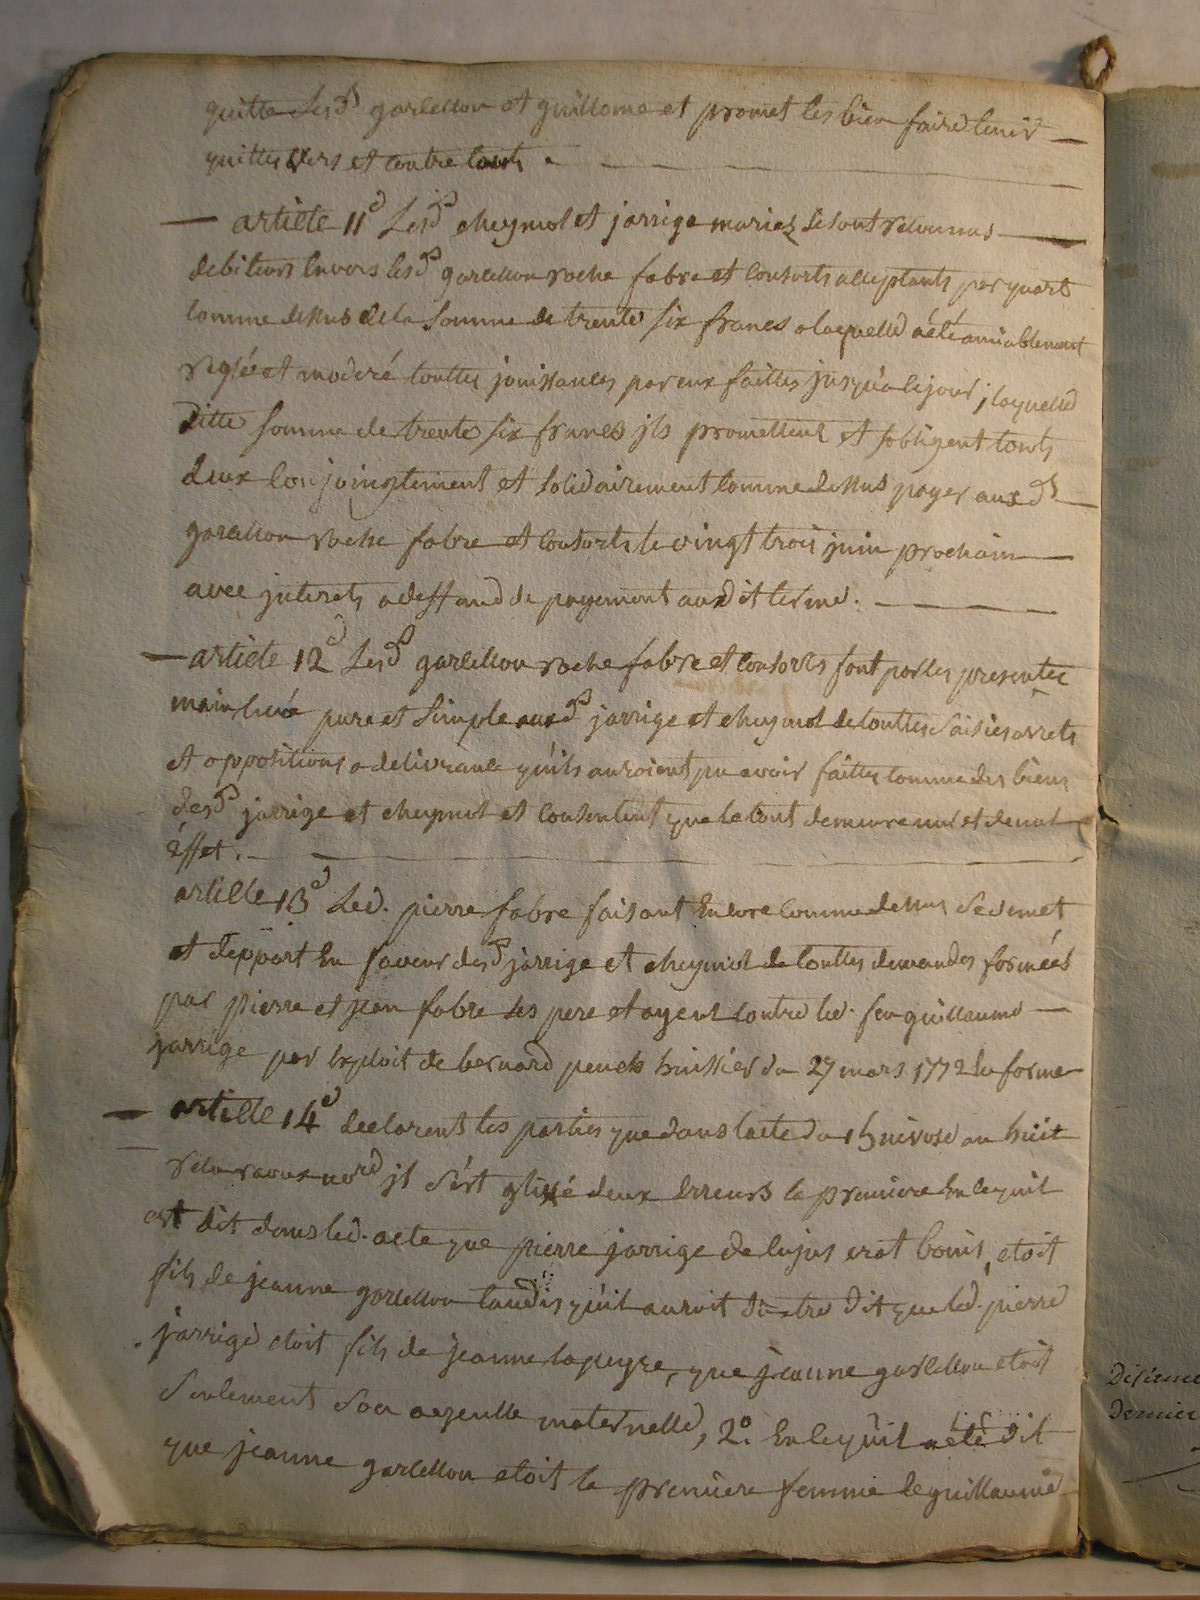 quitte lesd. garcelon et guillome et promet les bien faire tenir
quittes vers et contre touts.
article 11e Lesd. cheymol et jarrige mariez se sont reconnus
debiteurs Envers lesd. garcelon roche fabre et consorts acceptants par quart
comme dessus de la somme de trente six francs a laquelle a été amiablement
reglée et modéré touttes jouissances par eux faittes jusqu'a ce jour, laquelle
ditte somme de trente six francs jls promettent et s'obligent touts
deux conjoingtement et solidairement comme dessus payer auxd.
garcelon roche fabre et consorts le vingt trois juin prochain
avec jnterets a deffaud de payement audit terme.
article 12e Lesd. garcelon roche fabre et consorts font par les presentes
main levée pure et simple auxd. jarrige et cheymol de touttes saisies arrets
et oppositions a delivrance qu'ils auroient pu avoir faittes comme des biens
desd. jarrige et cheymol et consentent que le tout demeure nul et de nul
éffet.
article 13e Led. pierre fabre faisant Encore comme dessus se demet
et depport En faveur desd. jarrige et cheymol de touttes demandes formées
par pierre et jean fabre ses pere et ayeul contre led. feu guillaume
jarrige par Exploit de bernard peuch huissier du 27 mars 1772 En forme
article 14e declarent les parties que dans l'acte du 15 nivose an huit
reçu jl s'est glissé deux Erreurs la premiere En ce qu'il
est dit dans led. acte que pierre jarrige de cujus etoit
fils de jeanne garcelon tandis qu'il auroit du etre dit que led. pierre
jarrige etoit fils de jeanne lapeyre, que jeanne garcelon etoit
seulement son ayeulle maternelle, 2.° En ce qu'il a été dit
que jeanne garcelon etoit la premiere femme de guillaume
Dernier